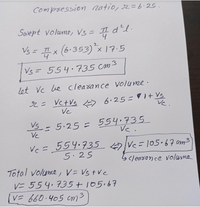 Compression ratio, r = 6.25
Swept volume, Vs = π/4 d² l
Vs = π/4 x (6.353)² x 17.5
Vs = 554.735 cm³
Let Vc be clearance volume.
r = Vc+Vs/Vc ⇔ 6.25 = 1 + Vs/Vc
Vs/Vc = 5.25 = 554.735/Vc
Vc = 554.735/5.25 ⇔ Vc = 105.67 cm³
↳ clearance volume
Total volume, V = Vs + Vc
V = 554.735 + 105.67
V = 660.405 cm³